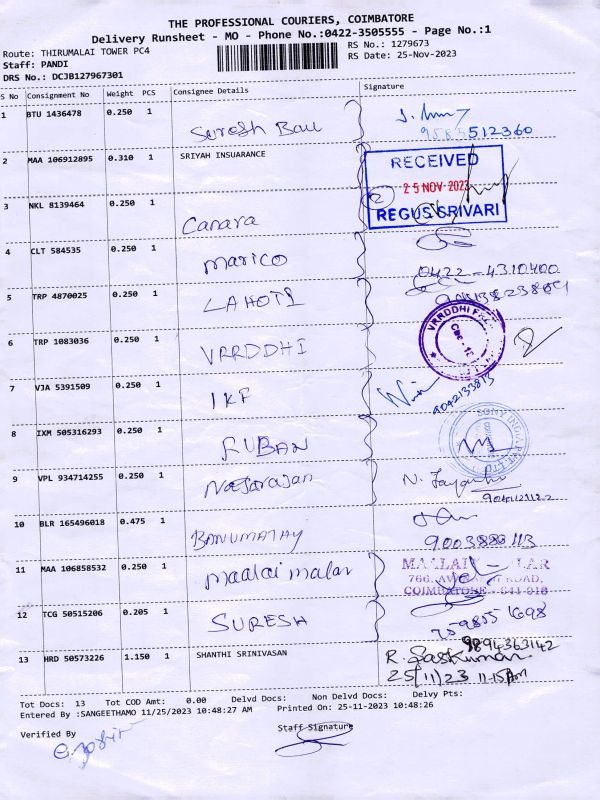 THE PROFESSIONAL COURIERS, COIMBATORE
Delivery Runsheet - MO - Phone No.:0422-3505555 - Page No.:1
Route: THIRUMALAI TOWER PC4
RS No.: 1279673
Staff: PANDI
RS Date: 25-Nov-2023
DRS No.: DCJB127967301
S No Consignment No Weight PCS Consignee Details Signature
1 BTU 1436478 0.250 1 Suresh Babu
9585512360
2 MAA 106912895 0.310 1 SRIYAH INSUARANCE
RECEIVED
25 NOV 2023
REGUS SRIVARI
3 NKL 8139464 0.250 1 Canara
4 CLT 584535 0.250 1 Marico
0422-4310400
5 TRP 4870025 0.250 1 LAHOTI
6 TRP 1083036 0.250 1 VRRDDHI
VRRDDHI
7 VJA 5391509 0.250 1 IKF
9042133813
8 IXM 505316293 0.250 1 RUBAN
SONY INDIA PVT LTD
9 VPL 934714255 0.250 1 Natarajan
10 BLR 165496018 0.475 1 BANUMATHY
9003888113
11 MAA 106858532 0.250 1 Maalai malar
COIMBATORE - 641 018
12 TCG 50515206 0.205 1 SURESH
7598551698
13 HRD 50573226 1.150 1 SHANTHI SRINIVASAN
9894363142
R. Sasikumar
25/11/23 11-15 Am
Tot Docs: 13 Tot COD Amt: 0.00 Delvd Docs: Non Delvd Docs: Delvy Pts:
Entered By :SANGEETHAMO 11/25/2023 10:48:27 AM Printed On: 25-11-2023 10:48:26
Verified By
Staff Signature